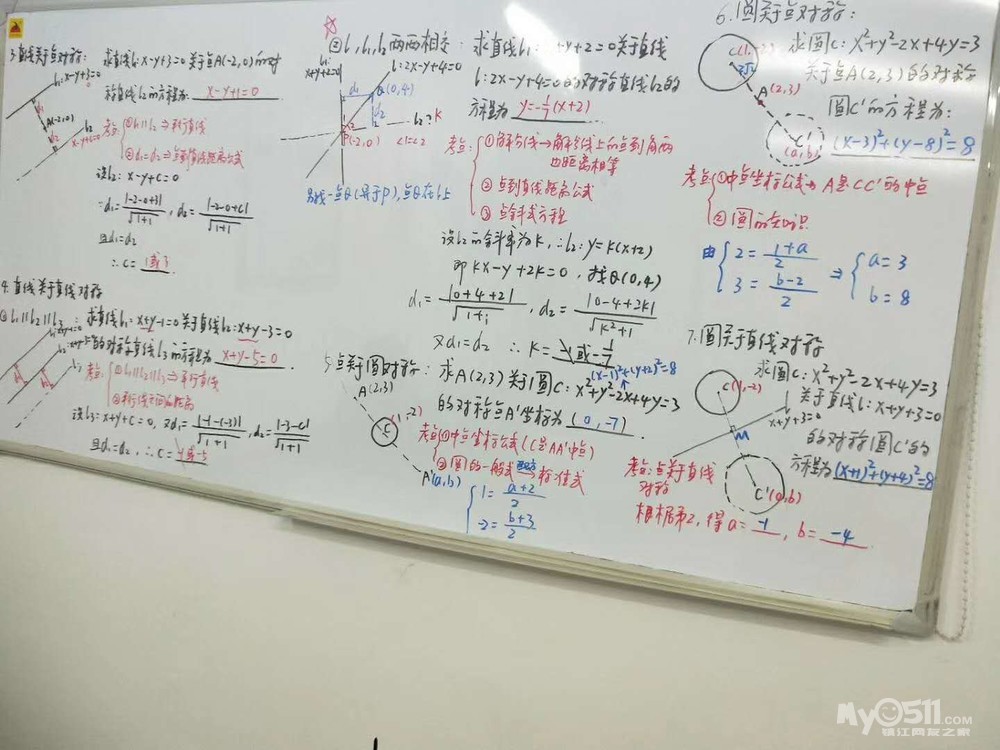 3.直线关于点对称: 求直线l₁:x-y+3=0关于点A(-2,0)的对
称直线l₂的方程为 x-y+1=0
l₁:x-y+3=0
d₁
A(-2,0)
d₂
l₂
x-y+c=0
考点: ①l₁∥l₂⇒平行直线
②d₁=d₂⇒点到直线距离公式
设l₂: x-y+c=0
∵d₁=|-2-0+3|/√1+1, d₂=|-2-0+c|/√1+1
且d₁=d₂
∴c=1或3
4.直线关于直线对称
①l₁∥l₂∥l₃: 求直线l₁:x+y-1=0关于直线l₂:x+y-3=0
的对称直线l₃的方程为 x+y-5=0
考点: ①l₁∥l₂∥l₃⇒平行直线
②平行线之间的距离
设l₃:x+y+c=0, 又d₁=|-1-(-3)|/√1+1, d₂=|-3-c|/√1+1
且d₁=d₂, ∴c=-1或-5
②l,l₁,l₂两两相交: 求直线l₁: x+y+2=0关于直线
l:2x-y+4=0的对称直线l₂的
方程为 y=-1/7(x+2)
l₁:
x+y+2=0
l:2x-y+4=0
Q(0,4)
d₁
d₂
P(-2,0)
l₂? K
另找一点Q(异于P),点Q在l上
考点: ①角平分线→角平分线上的点到角两
边距离相等
②点到直线距离公式
③点斜式方程
设l₂的斜率为k,∴l₂:y=k(x+2)
即kx-y+2k=0, 找Q(0,4)
d₁=|0+4+2|/√1+1, d₂=|0-4+2k|/√k²+1
又d₁=d₂ ∴k=-1或-1/7
5.点关于圆对称: 求A(2,3)关于圆C:x²+y²-2x+4y=3
(x-1)²+(y+2)²=8
的对称点A'坐标为(0,-7).
A(2,3)
(1,-2)
C
A'(a,b)
考点①中点坐标公式(C是AA'中点)
②圆的一般式 配方⇒ 标准式
1=a+2/2
-2=b+3/2
6.圆关于点对称:
求圆C:x²+y²-2x+4y=3
关于点A(2,3)的对称
圆C'的方程为:
(x-3)²+(y-8)²=8
C(1,-2)
2√2
A(2,3)
C'
(a,b)
考点①中点坐标公式→A是CC'的中点
②圆的知识
由 2=1+a/2 ⇒ a=3
3=b-2/2 b=8
7.圆关于直线对称
求圆C:x²+y²-2x+4y=3
关于直线l:x+y+3=0
的对称圆C'的
方程为(x+1)²+(y+4)²=8
C(1,-2)
x+y+3=0
M
C'(a,b)
考点:点关于直线
对称
根据第2,得a=-1, b=-4
My0511.COM
镇江网友之家